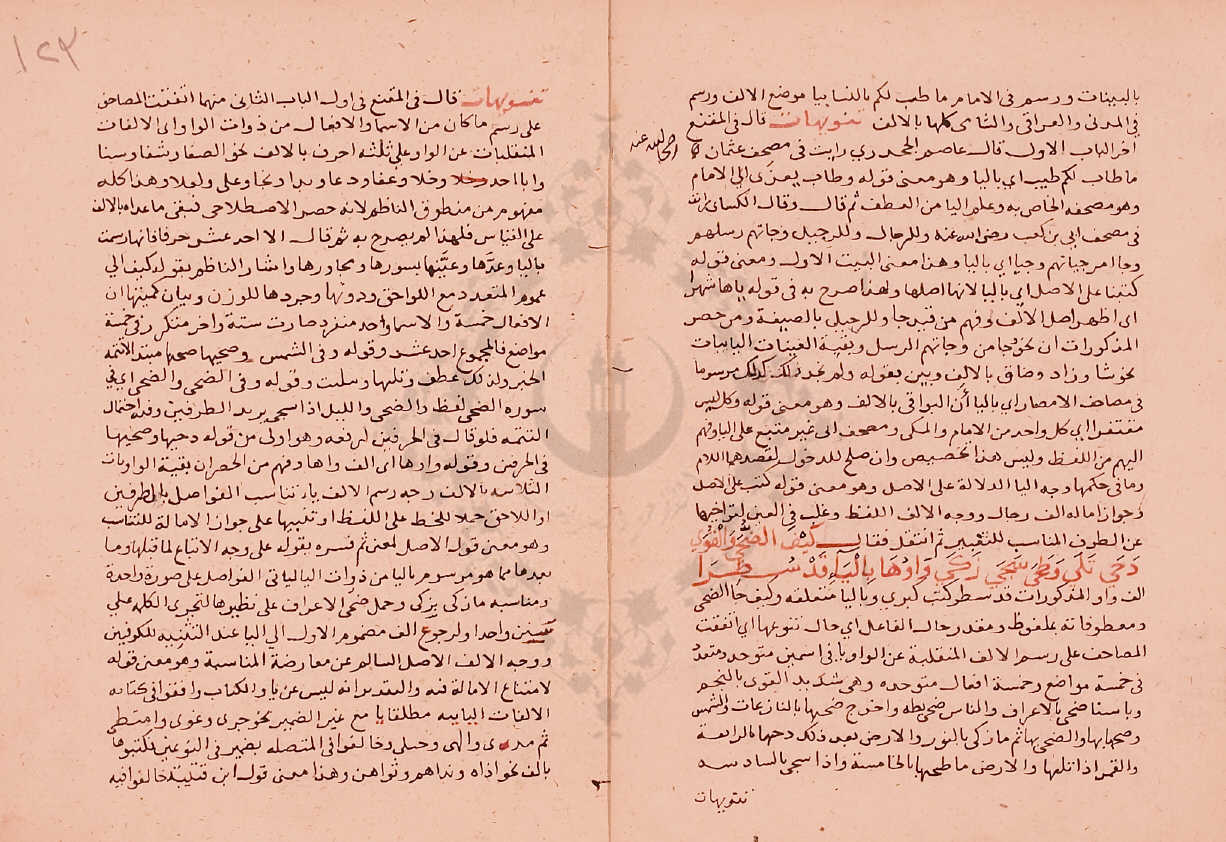 بالبينات ورسم فى الامام ما طب لكم بالنسا بيا موضع الالف ورسم
فى المدنى والعراقى والشامى كلها بالالف تنويهات قال فى المقنع
اخر الباب الاول قال عاصم الجحدري رايت فى مصحف عثمان
رضى الله عنه
ما طاب لكم طيب اي باليا وهو معنى قوله وطاب يعزى الى الامام
وهو مصحفه الخاص به وعلم اليا من العطف ثم قال وقال الكساى رايت
فى مصحف ابى بن كعب رضى الله عنه وللرجال وللرجيل وجاتهم رسلهم
وجا امر جياتهم وجيا اي باليا وهذا معنى البيت الاول ومعنى قوله
كتبنا على الاصل اي باليا لانها اصلها ولهذا صرح به فى قوله ياها شهرا
اى اظهر اصل الالف وفهم من قيد جا وللرجيل بالصيغة ومن حصر
المذكورات ان نحو فجا من وجاتهم الرسل وبقية العينات الياييات
نحو شا وزاد وضاق بالالف وبين بقوله ولم نجد ذلك كذلك مرسوما
فى مصاحف الامصار اي باليا أن البواقى بالالف وهو معنى قوله وكل ليس
مقتفرا اي كل واحد من الامام والمكى ومصحف ابى غير متبع على اليا وفهم
اليهم من اللفظ وليس هذا تخصيص وان صلح للدخول لقصدهما اللام
وما فى حكمها وجه اليا الدلالة على الاصل وهو معنى قوله كتب على الاصل
وجواز امالة الف رجال ووجه الالف اللفظ وغلب فى العين لتراخيها
عن الطرف المناسب للتغيير ثم انتقل فقال كيف الضحى والقوى
دحى تلى وطحى سجى زكى واوها بالياء قد سطرا
الف واو المذكورات قد سطر كتب كبري وباليا متعلقه وكيف جا الضحى
ومعطوفاته بملفوظ ومقدر حال الفاعل اي حال تنوعها اي اتفقت
المصاحف على رسم الالف المنقلبة عن الواو يا فى اسمين متوحد ومتعدد
فى خمسة مواضع وخمسة افعال متوحده وهى شديد القوى بالنجم
وباسنا ضحى بالاعراف والناس ضحى بطه واخرج ضحيها بالنازعات والشمس
وضحيها والضحى بها ثم ما زكى بالنور والارض بعد ذلك دحيها بالرابعة
والقمر اذا تليها والارض ما طحيها بالخامسة واذا سجى بالسادسه
تنويهات
١٢٣
تنويهات قال فى المقنع فى اول الباب الثانى منهما اتفقت المصاحف
على رسم ما كان من الاسما والافعال من ذوات الواو الى الالفات
المنقلبات عن الواو على ثلثه احرف بالالف نحو الصفا وشفا وسنا
وابا احد وخلا وعفا ودعا وبدا ونجا وعلى ولعلا وهذا كله
مفهوم من منطوق الناظم لانه حصر الاصطلاحى فبقى ما عداه بالالف
على القياس فلهذا لم يصرح به ثم قال الا احد عشر حرفا فانها رسمت
باليا وعدها وعينها بسورها ومجاورها واشار الناظم بقوله كيف الى
عموم المتعدد مع اللواحق ودونها وجردها للوزن وبيان كميتها ان
الافعال خمسة والاسما واحد منفرد صارت ستة واخر متكرر فى خمسة
مواضع فالمجموع احد عشر وقوله وفى الشمس وضحيها صحها مبتد الائمه
الخبر ولذلك عطف وتليها رسلت وقوله وفى الضحى والضحى اي فى
سورة الضحى لفظ والضحى والليل اذا سجى يريد الطرفين وفيه احتمال
التتمه فلو قال فى الحرفين لرفعه وهو اولى من قوله دحيها وضحيها
فى الحرفين وقوله واوها اى الف واوها وفهم من الحصر ان بقية الواويات
الثلاثيه بالالف وجه رسم الالف ياء تناسب الفواصل بالطرفين
او اللاحق حملا للخط على اللفظ او تنبيها على جواز الامالة للتناسب
وهو معنى قول الاصل لمعنى ثم فسره بقوله على وجه الاتباع لما قبلها وما
بعدها مما هو مرسوم باليا من ذوات اليا لياتى الفواصل على صورة واحدة
ومناسبه ما زكى يزكى وحمل ضحى الاعراف على نظيرها لتجرى الكلمه على
سنن واحد اولرجوع الف مضموم الاول الى اليا عند التثنيه للكوفيين
ووجه الالف الاصل السالم عن معارضة المناسبة وهو معنى قوله
لامتناع الامالة فيه والتقدير انه ليس عن يا والكتاب وافقوا فى كتابه
الالفات الياييه مطلقا يا مع غير الضمير نحو جرى وغوى وامتطى
ثم مدى والهى وحبلى وخالفوا فى المتصله بضمير فى النوعين فكتبوها
بالف نحو اذاه ونداهم وثواهن وهذا معنى قول ابن قتيبة خالفوا فيه